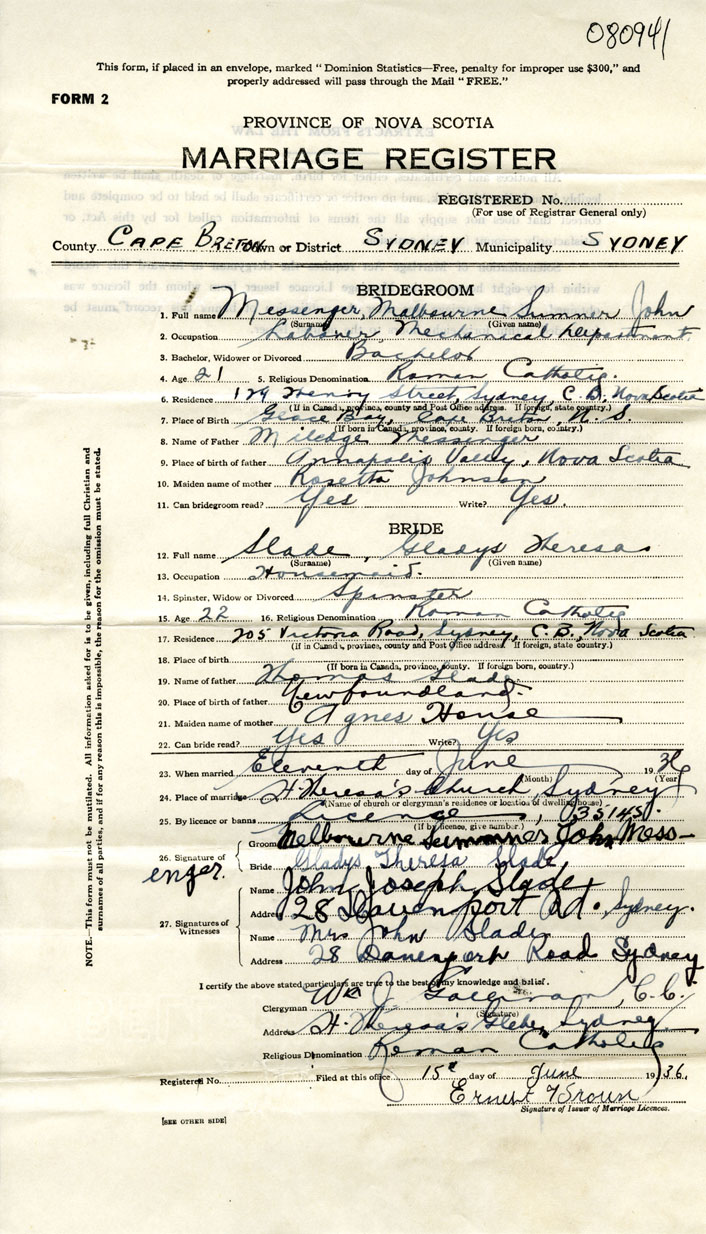 080941
This form, if placed in an envelope, marked "Dominion Statistics—Free, penalty for improper use $300," and
properly addressed will pass through the Mail "FREE."
FORM 2
PROVINCE OF NOVA SCOTIA
MARRIAGE REGISTER
REGISTERED No.
(For use of Registrar General only)
County CAPE BRETON Town or District SYDNEY Municipality SYDNEY
BRIDEGROOM
1. Full name Messenger, Malbourne Summer John
(Surname) (Given name)
2. Occupation Labourer Mechanical department
3. Bachelor, Widower or Divorced Bachelor
4. Age 21 5. Religious Denomination Roman Catholic.
6. Residence 179 Henry Street, Sydney, C. B., Nova Scotia
(If in Canada, province, county and Post Office address. If foreign, state country.)
7. Place of Birth Glace Bay, Cape Breton, N. S.
(If born in Canada, province, county. If foreign born, country.)
8. Name of Father Miledge Messenger
9. Place of birth of father Annapolis Valley, Nova Scotia
10. Maiden name of mother Rosetta Johnson
11. Can bridegroom read? Yes Write? Yes.
BRIDE
12. Full name Slade, Gladys Theresa
(Surname) (Given name)
13. Occupation Housemaid.
14. Spinster, Widow or Divorced Spinster
15. Age 22 16. Religious Denomination Roman Catholic
17. Residence 205 Victoria Road, Sydney, C. B., Nova Scotia
(If in Canada, province, county and Post Office address. If foreign, state country.)
18. Place of birth
(If born in Canada, province, county. If foreign born, country.)
19. Name of father Thomas Slade
20. Place of birth of father Newfoundland
21. Maiden name of mother Agnes House
22. Can bride read? Yes Write? Yes
23. When married Eleventh day of June 1936
(Month) (Year)
24. Place of marriage St. Theresa's Church, Sydney
(Name of church or clergyman's residence or location of dwelling house)
25. By licence or banns Licence, 035145.
(If by licence, give number.)
26. Signature of
Groom Melbourne Summer John Mess-
enger.
Bride Gladys Theresa Slade
27. Signatures of
Witnesses
Name John Joseph Slade
Address 28 Davenport Rd. Sydney.
Name Mrs John Slade
Address 28 Davenport Road Sydney
I certify the above stated particulars are true to the best of my knowledge and belief.
Clergyman Wm J. C.C.
(Signature)
Address St. Theresa's Glebe, Sydney
Religious Denomination Roman Catholic
Registered No. Filed at this office 15th day of June 1936.
Ernest Brown
Signature of Issuer of Marriage Licences.
[SEE OTHER SIDE]
NOTE.—This form must not be mutilated. All information asked for is to be given, including full Christian and
surnames of all parties, and if for any reason this is impossible, the reason for the omission must be stated.